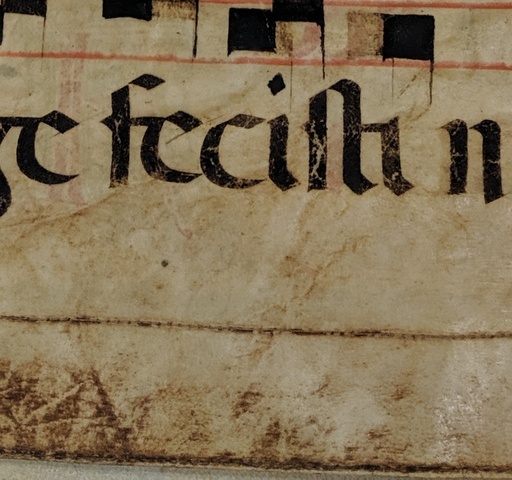 ge fecisti